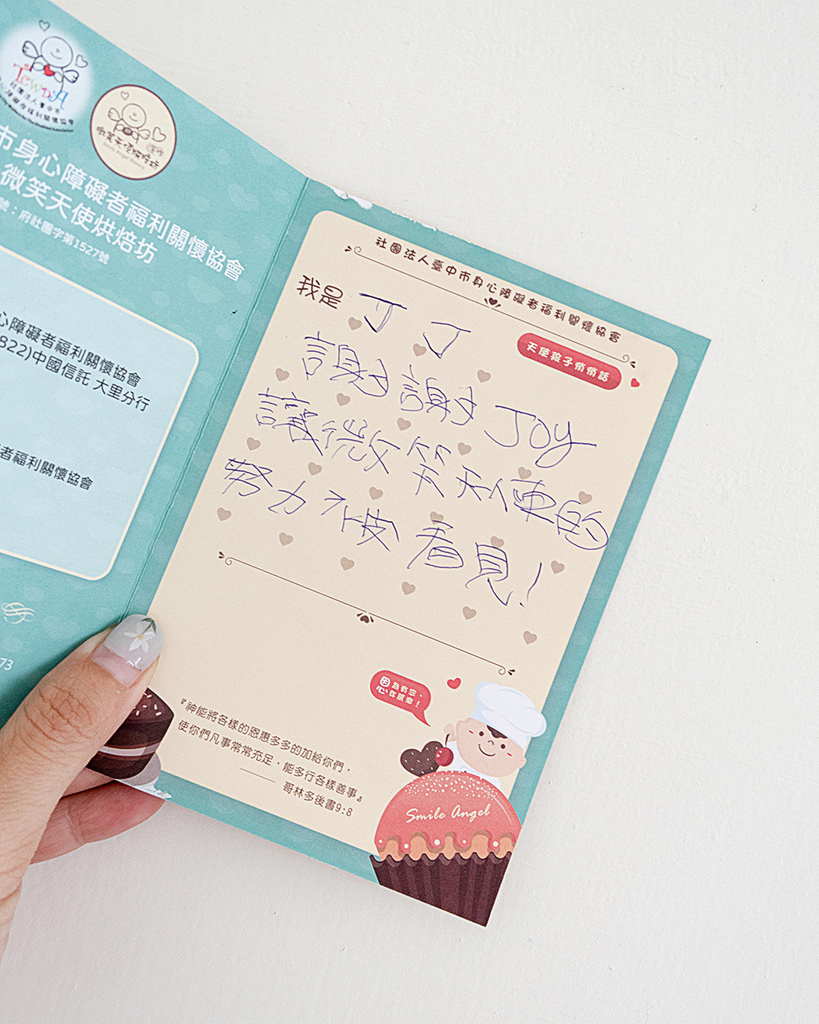 市身心障礙者福利關懷協會
微笑天使烘焙坊
號：府社團字第1527號
心障礙者福利關懷協會
822)中國信託 大里分行
者福利關懷協會
73
社團法人臺中市身心障礙者福利關懷協會
天使孩子悄悄話
我是 丁丁
謝謝 Joy
讓微笑天使的
努力被看見！
因為有您，
心存感恩！
『神能將各樣的恩惠多多的加給你們，
使你們凡事常常充足，能多行各樣善事』
哥林多後書9:8
Smile Angel